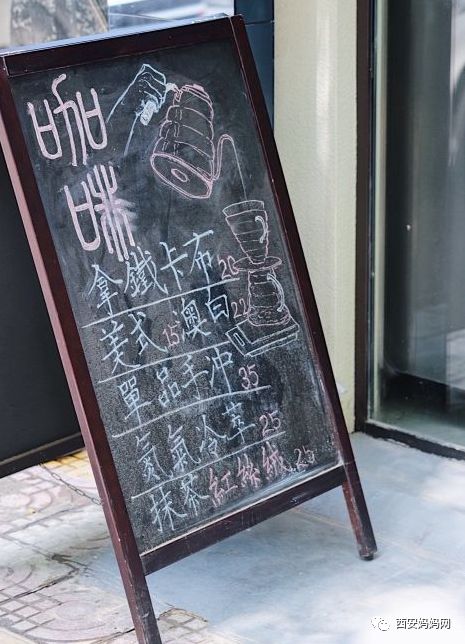 咖
啡
拿鐵卡布20
美式15澳白22
單品手冲35
氮氣冷享25
抹茶紅絲绒25
西安妈妈网